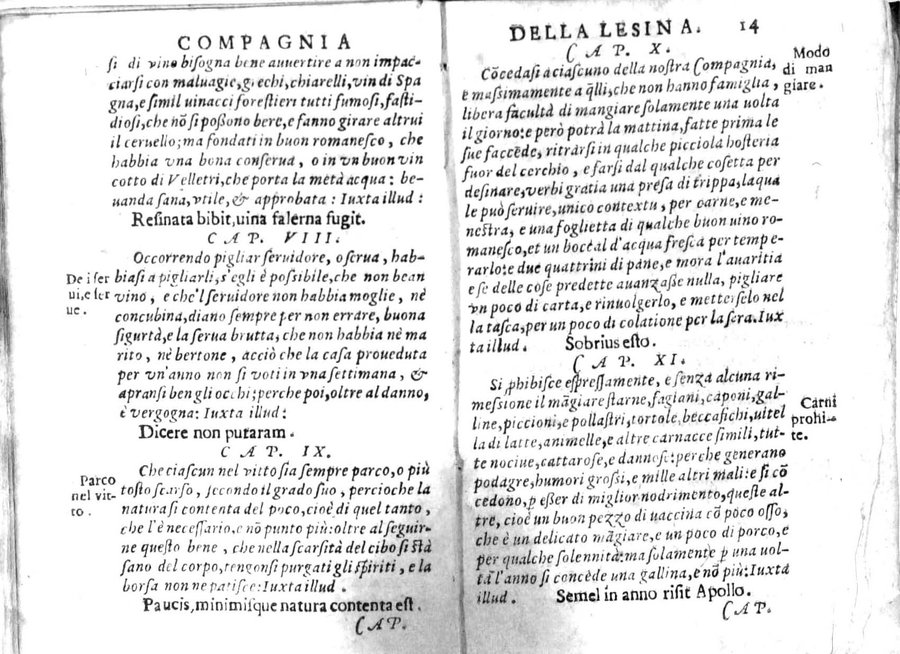 COMPAGNIA
si di vino bisogna bene auuertire a non impac-
ciarsi con maluagie, grechi, chiarelli, vin di Spa
gna, e simil uinacci forestieri tutti fumosi, fasti-
diosi, che nõ si possono bere, e fanno girare altrui
il ceruello; ma fondati in buon romanesco, che
habbia vna bona conserua, o in un buon vin
cotto di Velletri, che porta la metà acqua: be-
uanda sana, vtile, & approbata: Iuxta illud:
Resinata bibit, uina falerna fugit.
CAP. VIII.
Occorrendo pigliar seruidore, o serua, hab-
De i ser
biasi a pigliarli, s'egli è possibile, che non bean
ui, e ser
vino, e che'l seruidore non habbia moglie, nè
ue.
concubina, diano sempre per non errare, buona
sigurtà, e la serua brutta, che non habbia nè ma
rito, nè bertone, acciò che la casa proueduta
per vn'anno non si voti in vna settimana, &
apransi ben gli occhi; perche poi, oltre al danno,
è vergogna: Iuxta illud:
Dicere non putaram.
CAP. IX.
Parco
Che ciascun nel vitto sia sempre parco, o più
nel vit-
tosto scarso, secondo il grado suo, percioche la
to.
natura si contenta del poco, cioè di quel tanto,
che l'è necessario, e nõ punto più: oltre al seguir-
ne questo bene, che nella scarsità del cibo si stà
sano del corpo, tengonsi purgati gli spiriti, e la
borsa non ne patisce: Iuxta illud.
Paucis, minimisque natura contenta est.
CAP.
DELLA LESINA. 14
CAP. X.
Modo
di man
giare.
Cõcedasi a ciascuno della nostra Compagnia,
e massimamente a q̃lli, che non hanno famiglia,
libera facultà di mangiare solamente una uolta
il giorno: e però potrà la mattina, fatte prima le
sue faccẽde, ritrarsi in qualche picciola hosteria
fuor del cerchio, e farsi dal qualche cosetta per
desinare, verbi gratia una presa di trippa, laqua
le può seruire, unico contextu, per carne, e me-
nestra, e una foglietta di qualche buon uino ro-
manesco, et un boccal d'acqua fresca per tempe-
rarlo: e due quattrini di pane, e mora l'auaritia
e se delle cose predette auanzasse nulla, pigliare
vn poco di carta, e rinuolgerlo, e metterselo nel
la tasca, per un poco di colatione per la sera. Iux
ta illud. Sobrius esto.
CAP. XI.
Si phibisce espressamente, e senza alcuna ri-
messione il mãgiare starne, fagiani, caponi, gal-
Carni
line, piccioni, e pollastri, tortole, beccafichi, uitel
prohi-
la di latte, animelle, e altre carnacce simili, tut-
te.
te nociue, cattarose, e dannose: perche generano
podagre, humori grossi, e mille altri mali: e si cõ
cedono, p esser di miglior nodrimento, queste al-
tre, cioè un buon pezzo di uaccina cõ poco osso,
che è un delicato mãgiare, e un poco di porco, e
per qualche solennità: ma solamente p una uol-
ta l'anno si concede una gallina, e nõ più: Iuxta
illud. Semel in anno risit Apollo.
CAP.